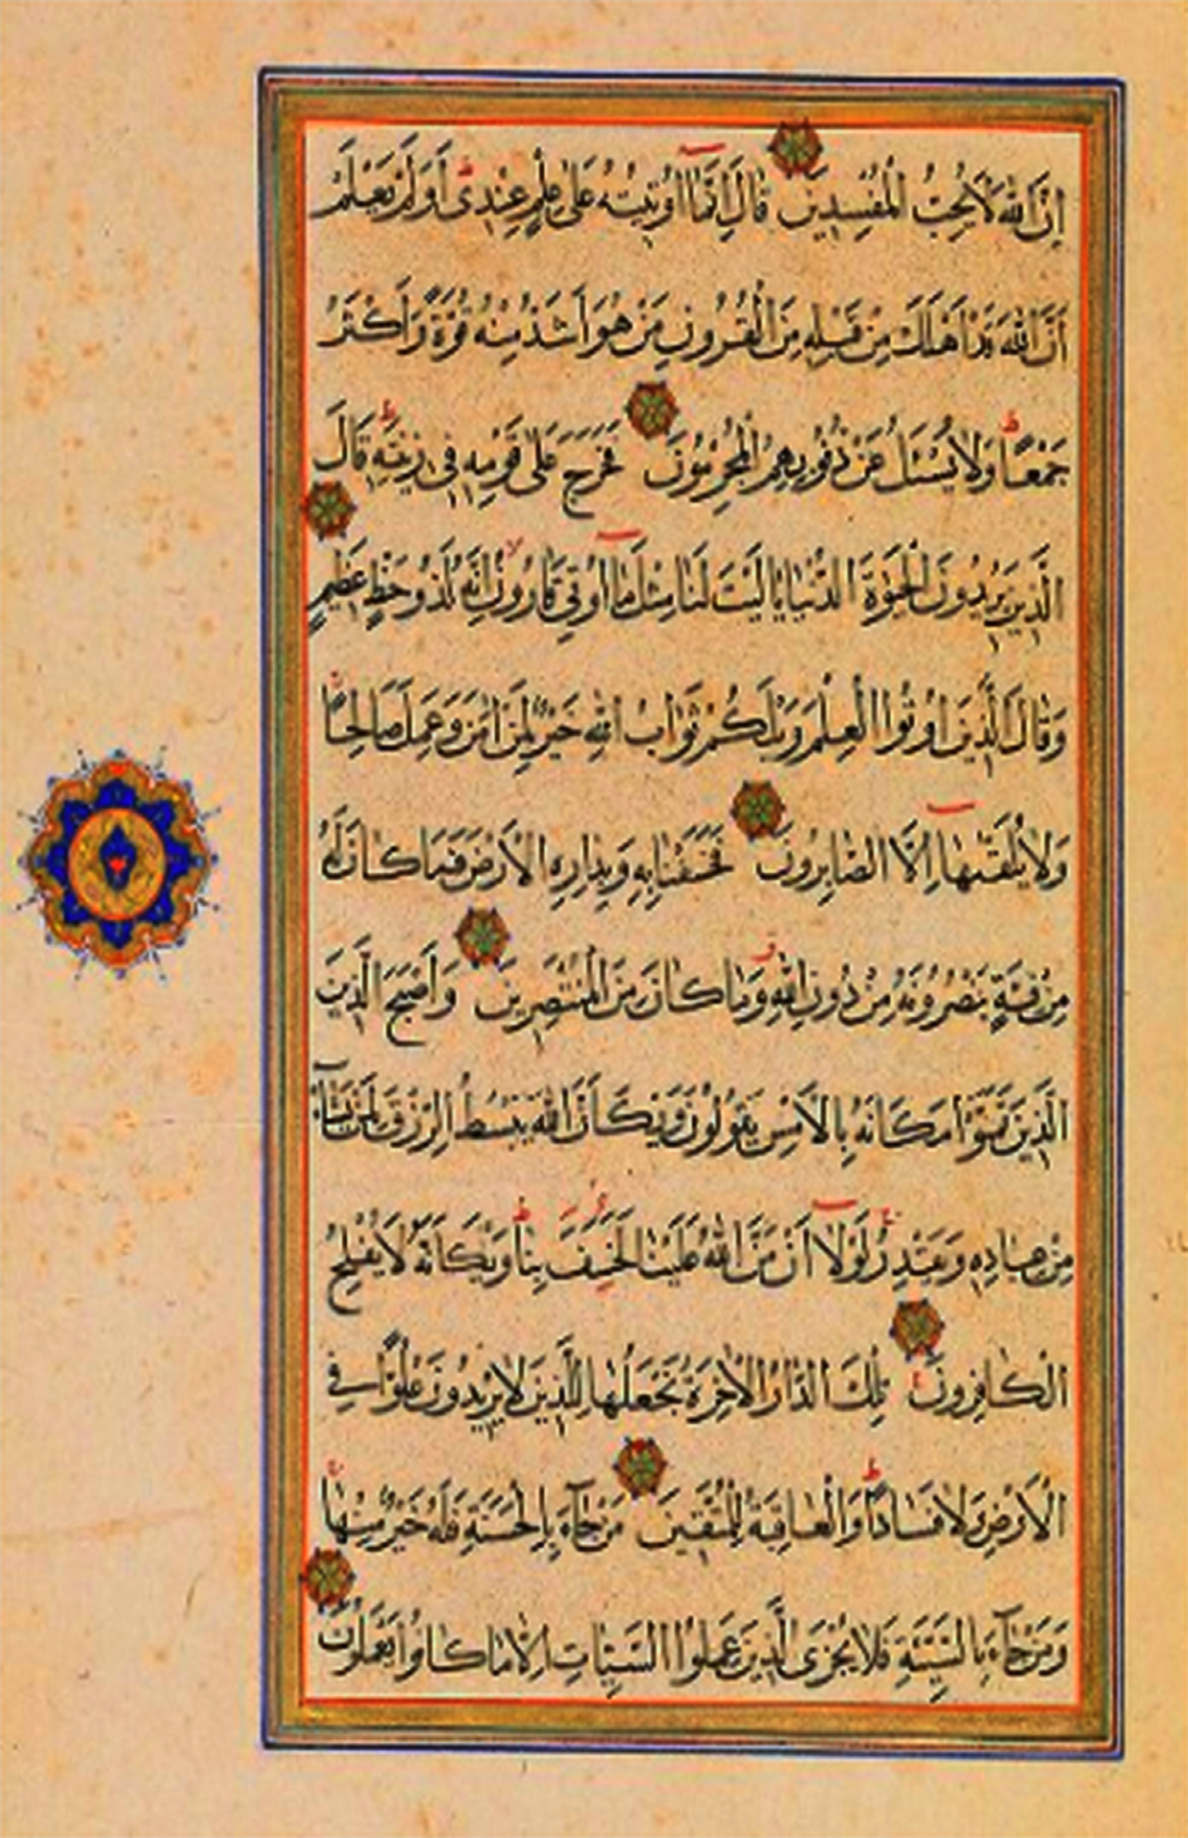 إِنَّ اللّٰهَ لَا يُحِبُّ الْمُفْسِدِينَ قَالَ إِنَّمَآ أُوتِيتُهُ عَلٰى عِلْمٍ عِنْدِى أَوَلَمْ يَعْلَمْ
أَنَّ اللّٰهَ قَدْ أَهْلَكَ مِنْ قَبْلِهِ مِنَ الْقُرُونِ مَنْ هُوَ أَشَدُّ مِنْهُ قُوَّةً وَأَكْثَرُ
جَمْعًا وَلَا يُسْئَلُ عَنْ ذُنُوبِهِمُ الْمُجْرِمُونَ فَخَرَجَ عَلٰى قَوْمِهِ فِى زِينَتِهِ قَالَ
الَّذِينَ يُرِيدُونَ الْحَيٰوةَ الدُّنْيَا يَا لَيْتَ لَنَا مِثْلَ مَآ أُوتِىَ قَارُونُ إِنَّهُ لَذُو حَظٍّ عَظِيمٍ
وَقَالَ الَّذِينَ أُوتُوا الْعِلْمَ وَيْلَكُمْ ثَوَابُ اللّٰهِ خَيْرٌ لِمَنْ اٰمَنَ وَعَمِلَ صَالِحًا
وَلَا يُلَقّٰيهَآ إِلَّا الصَّابِرُونَ فَخَسَفْنَا بِهِ وَبِدَارِهِ الْأَرْضَ فَمَا كَانَ لَهُ
مِنْ فِئَةٍ يَنْصُرُونَهُ مِنْ دُونِ اللّٰهِ وَمَا كَانَ مِنَ الْمُنْتَصِرِينَ وَأَصْبَحَ الَّذِينَ
الَّذِينَ تَمَنَّوْا مَكَانَهُ بِالْأَمْسِ يَقُولُونَ وَيْكَأَنَّ اللّٰهَ يَبْسُطُ الرِّزْقَ لِمَنْ يَشَآءُ
مِنْ عِبَادِهِ وَيَقْدِرُ لَوْلَآ أَنْ مَنَّ اللّٰهُ عَلَيْنَا لَخَسَفَ بِنَا وَيْكَأَنَّهُ لَا يُفْلِحُ
الْكَافِرُونَ تِلْكَ الدَّارُ الْاٰخِرَةُ نَجْعَلُهَا لِلَّذِينَ لَا يُرِيدُونَ عُلُوًّا فِى
الْأَرْضِ وَلَا فَسَادًا وَالْعَاقِبَةُ لِلْمُتَّقِينَ مَنْ جَآءَ بِالْحَسَنَةِ فَلَهُ خَيْرٌ مِنْهَا
وَمَنْ جَآءَ بِالسَّيِّئَةِ فَلَا يُجْزَى الَّذِينَ عَمِلُوا السَّيِّئَاتِ إِلَّا مَا كَانُوا يَعْمَلُونَ